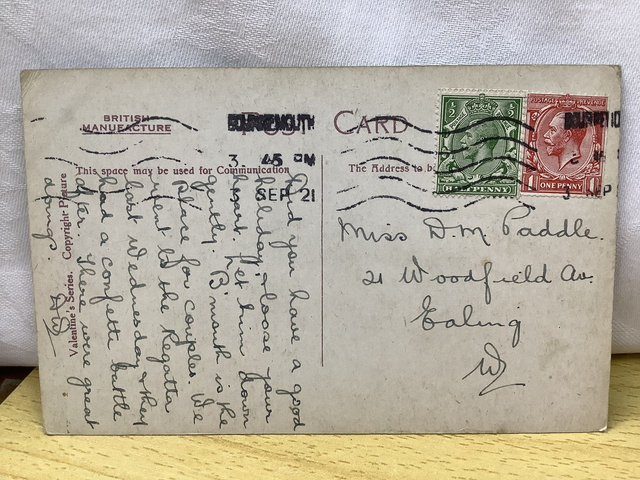 BRITISH
MANUFACTURE
CARD
BOURNEMOUTH
3. 45 PM
SEP 21
This space may be used for Communication
The Address to b
HALFPENNY
POSTAGE REVENUE
ONE PENNY
Valentine's Series. Copyright Picture
Did you have a good
holiday, & loose your
heart. Let him down
gently. B'mouth is the
place for couples. We
went to the Regatta
last Wednesday & they
had a confetti battle
after. There were great
doings.
Miss D. M. Paddle.
21 Woodfield Av.
Ealing
W